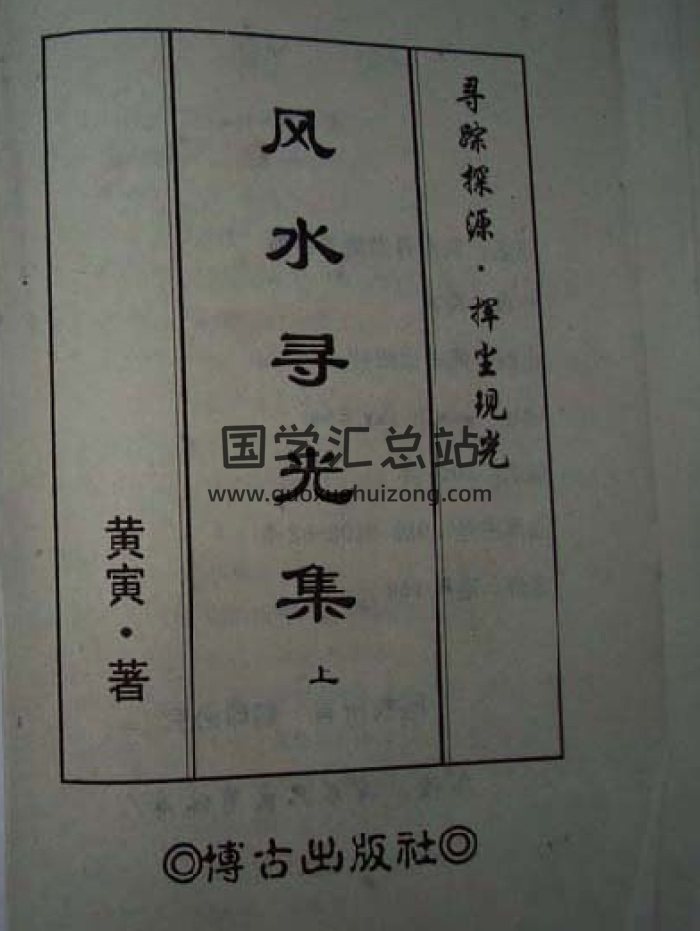 寻踪探源·挥尘现光
风水寻光集
上
黄寅·著
◎博古出版社◎
国学汇总站
www.guoxuehuizong.com